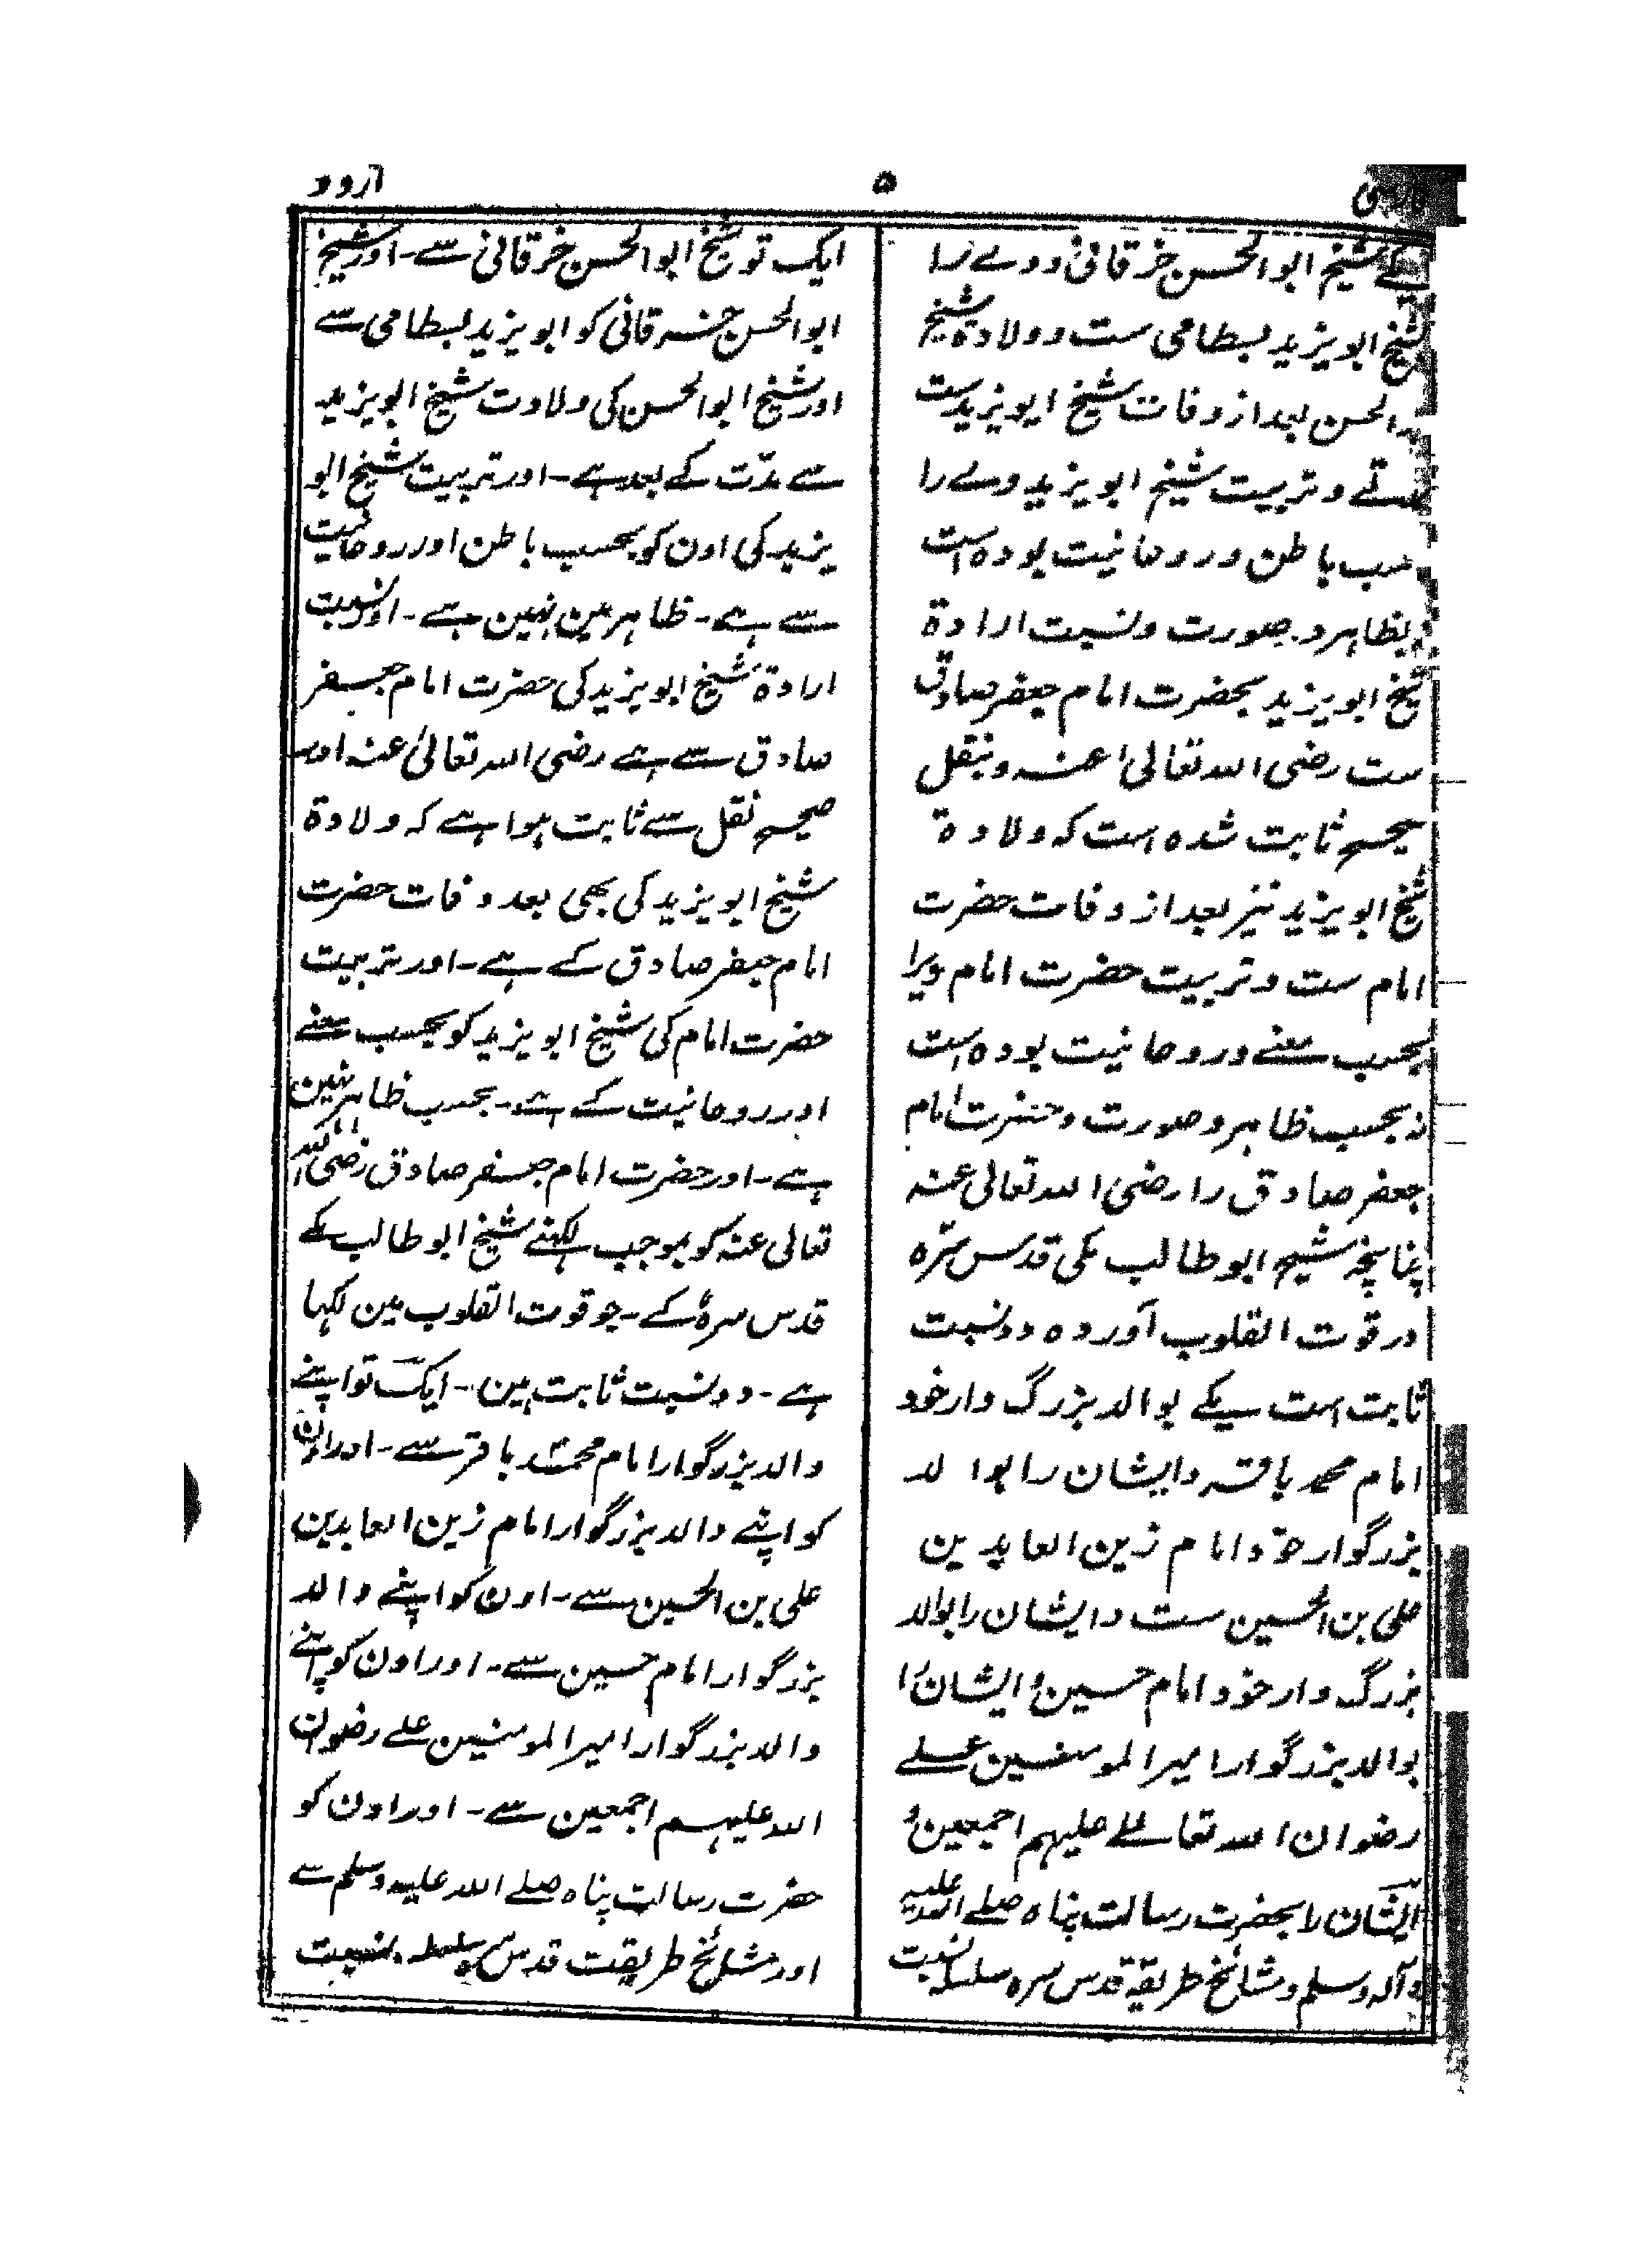 فارسی
۵
اردو
یکے شیخ ابو الحسن خرقانی و وے را
شیخ ابو یزید بسطامی ست و ولادۃ شیخ
الحسن بعد از وفات شیخ ابو یزید ست
مدتے و تربیت شیخ ابو یزید وے را
حسب باطن و روحانیت بوده است
بظاہر و صورت و نسبت ارادۃ
شیخ ابو یزید بحضرت امام جعفر صادق
ست رضی اللہ تعالیٰ عنہ و بنقل
صحیح ثابت شده است کہ ولادۃ
شیخ ابو یزید نیز بعد از وفات حضرت
امام ست و تربیت حضرت امام ویرا
بحسب معنے و روحانیت بوده است
نہ بحسب ظاہر و صورت و حضرت امام
جعفر صادق را رضی اللہ تعالی عنہ
چنانچہ شیخ ابو طالب مکی قدس سرّہ
در قوت القلوب آورده دو نسبت
ثابت است یکے بوالد بزرگ وار خود
امام محمد باقر و ایشان را بوالد
بزرگوار خود امام زین العابدین
علی بن الحسین ست و ایشان را بوالد
بزرگ وار خود امام حسین و ایشان را
بوالد بزرگوار امیر المومنین علے
رضوان اللہ تعالےٰ علیہم اجمعین و
ایشان را بحضرت رسالت پناہ صلے اللہ علیہ
و آلہ و سلم و مشائخ طریقہ قدس سرہ سلسلہ نسبت
ایک تو شیخ ابو الحسن خرقانی سے۔ اور شیخ
ابو الحسن خرقانی کو ابو یزید بسطامی سے
اور شیخ ابو الحسن کی ولادت شیخ ابو یزید
سے مدّت کے بعد ہے۔ اور تربیت شیخ ابو
یزید کی اون کو بحسب باطن اور روحانیت
سے ہے۔ ظاہر مین نہین ہے۔ اور نسبت
ارادۃ شیخ ابو یزید کی حضرت امام جعفر
صادق سے ہے رضی اللہ تعالیٰ عنہ اور
صحیح نقل سے ثابت ہوا ہے کہ ولادۃ
شیخ ابو یزید کی بھی بعد وفات حضرت
امام جعفر صادق کے ہے۔ اور تربیت
حضرت امام کی شیخ ابو یزید کو بحسب معنے
اور روحانیت کے ہے۔ بحسب ظاہر نہین
ہے۔ اور حضرت امام جعفر صادق رضی اللہ
تعالی عنہ کو بموجب لکہنے شیخ ابو طالب مکے
قدس سرہٗ کے۔ جو قوت القلوب مین لکہا
ہے۔ دو نسبت ثابت ہین۔ ایک تو اپنے
والد بزرگوار امام محمّد باقر سے۔ اور اون
کو اپنے والد بزرگوار امام زین العابدین
علی بن الحسین سے۔ اون کو اپنے والد
بزرگوار امام حسین سے۔ اور اون کو اپنے
والد بزرگوار امیر المومنین علے رضوان
اللہ علیہم اجمعین سے۔ اور اون کو
حضرت رسالت پناہ صلے اللہ علیہ وسلم سے
اور مشائخ طریقت قدس سرہ سلسلہ نسبت